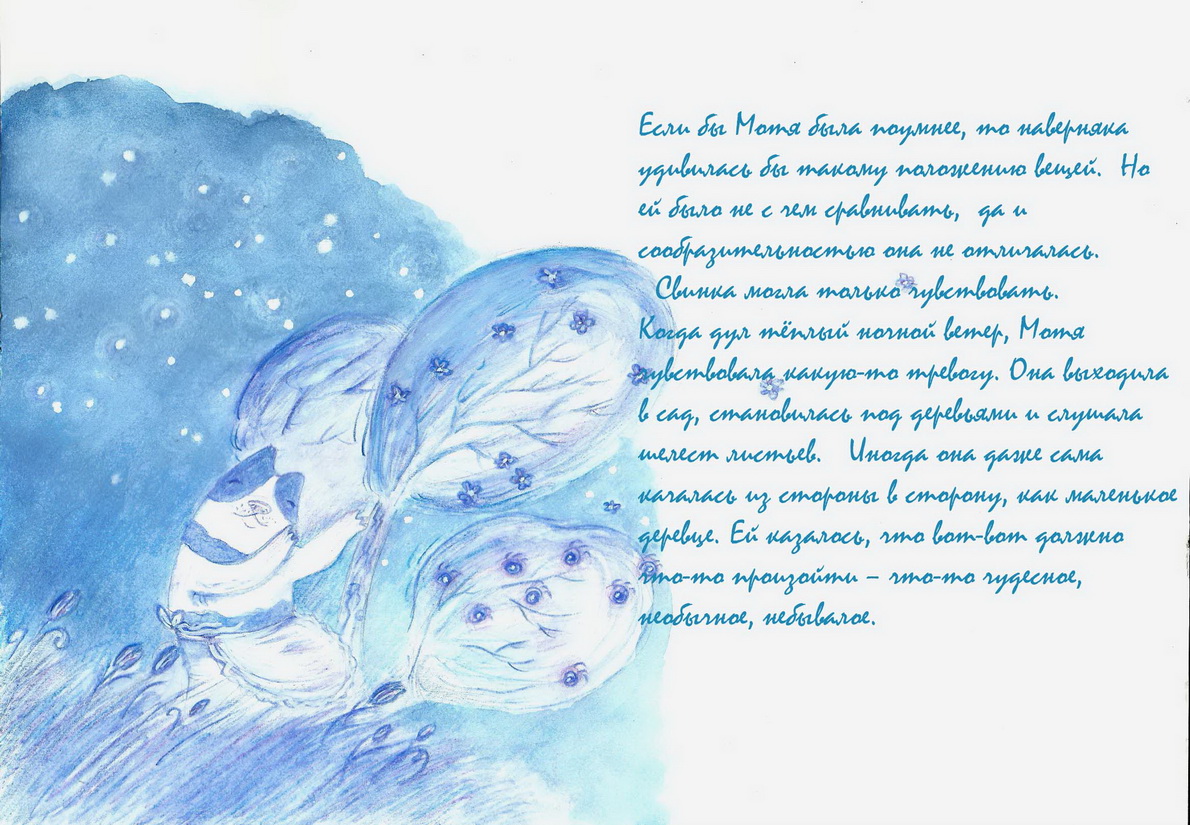 Если бы Мотя была поумнее, то наверняка
удивилась бы такому положению вещей. Но
ей было не с чем сравнивать, да и
сообразительностью она не отличалась.
Свинка могла только чувствовать.
Когда дул тёплый ночной ветер, Мотя
чувствовала какую-то тревогу. Она выходила
в сад, становилась под деревьями и слушала
шелест листьев. Иногда она даже сама
качалась из стороны в сторону, как маленькое
деревце. Ей казалось, что вот-вот должно
что-то произойти – что-то чудесное,
необычное, небывалое.